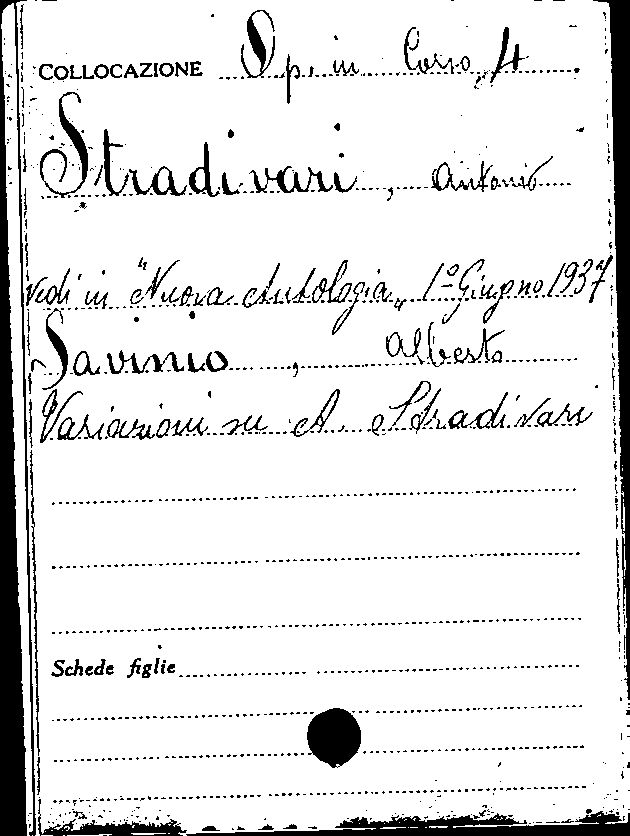 COLLOCAZIONE Op. in Corso 4
Stradivari, Antonio
Vedi in "Nuova Antologia„ 1º Giugno 1937
Savinio, Alberto
Variazioni su A. Stradivari
Schede figlie